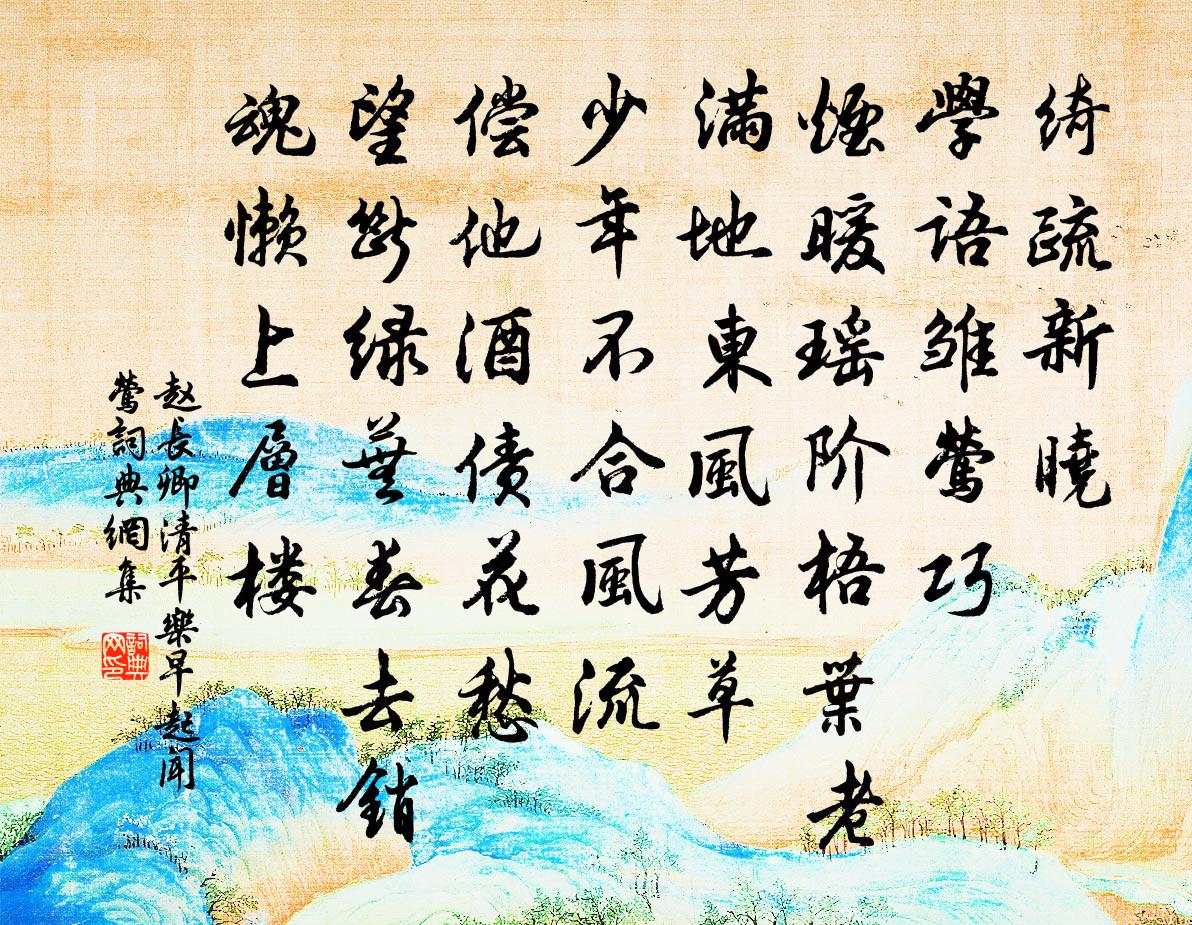 綺疏新曉
學語雏鶯巧
煙暖瑶阶梧葉老
满地東風芳草
少年不合風流
偿他酒债花愁
望斷绿蕪春去銷
魂懒上層楼
赵長卿清平樂早起聞
鶯詞典網集
詞典
网印